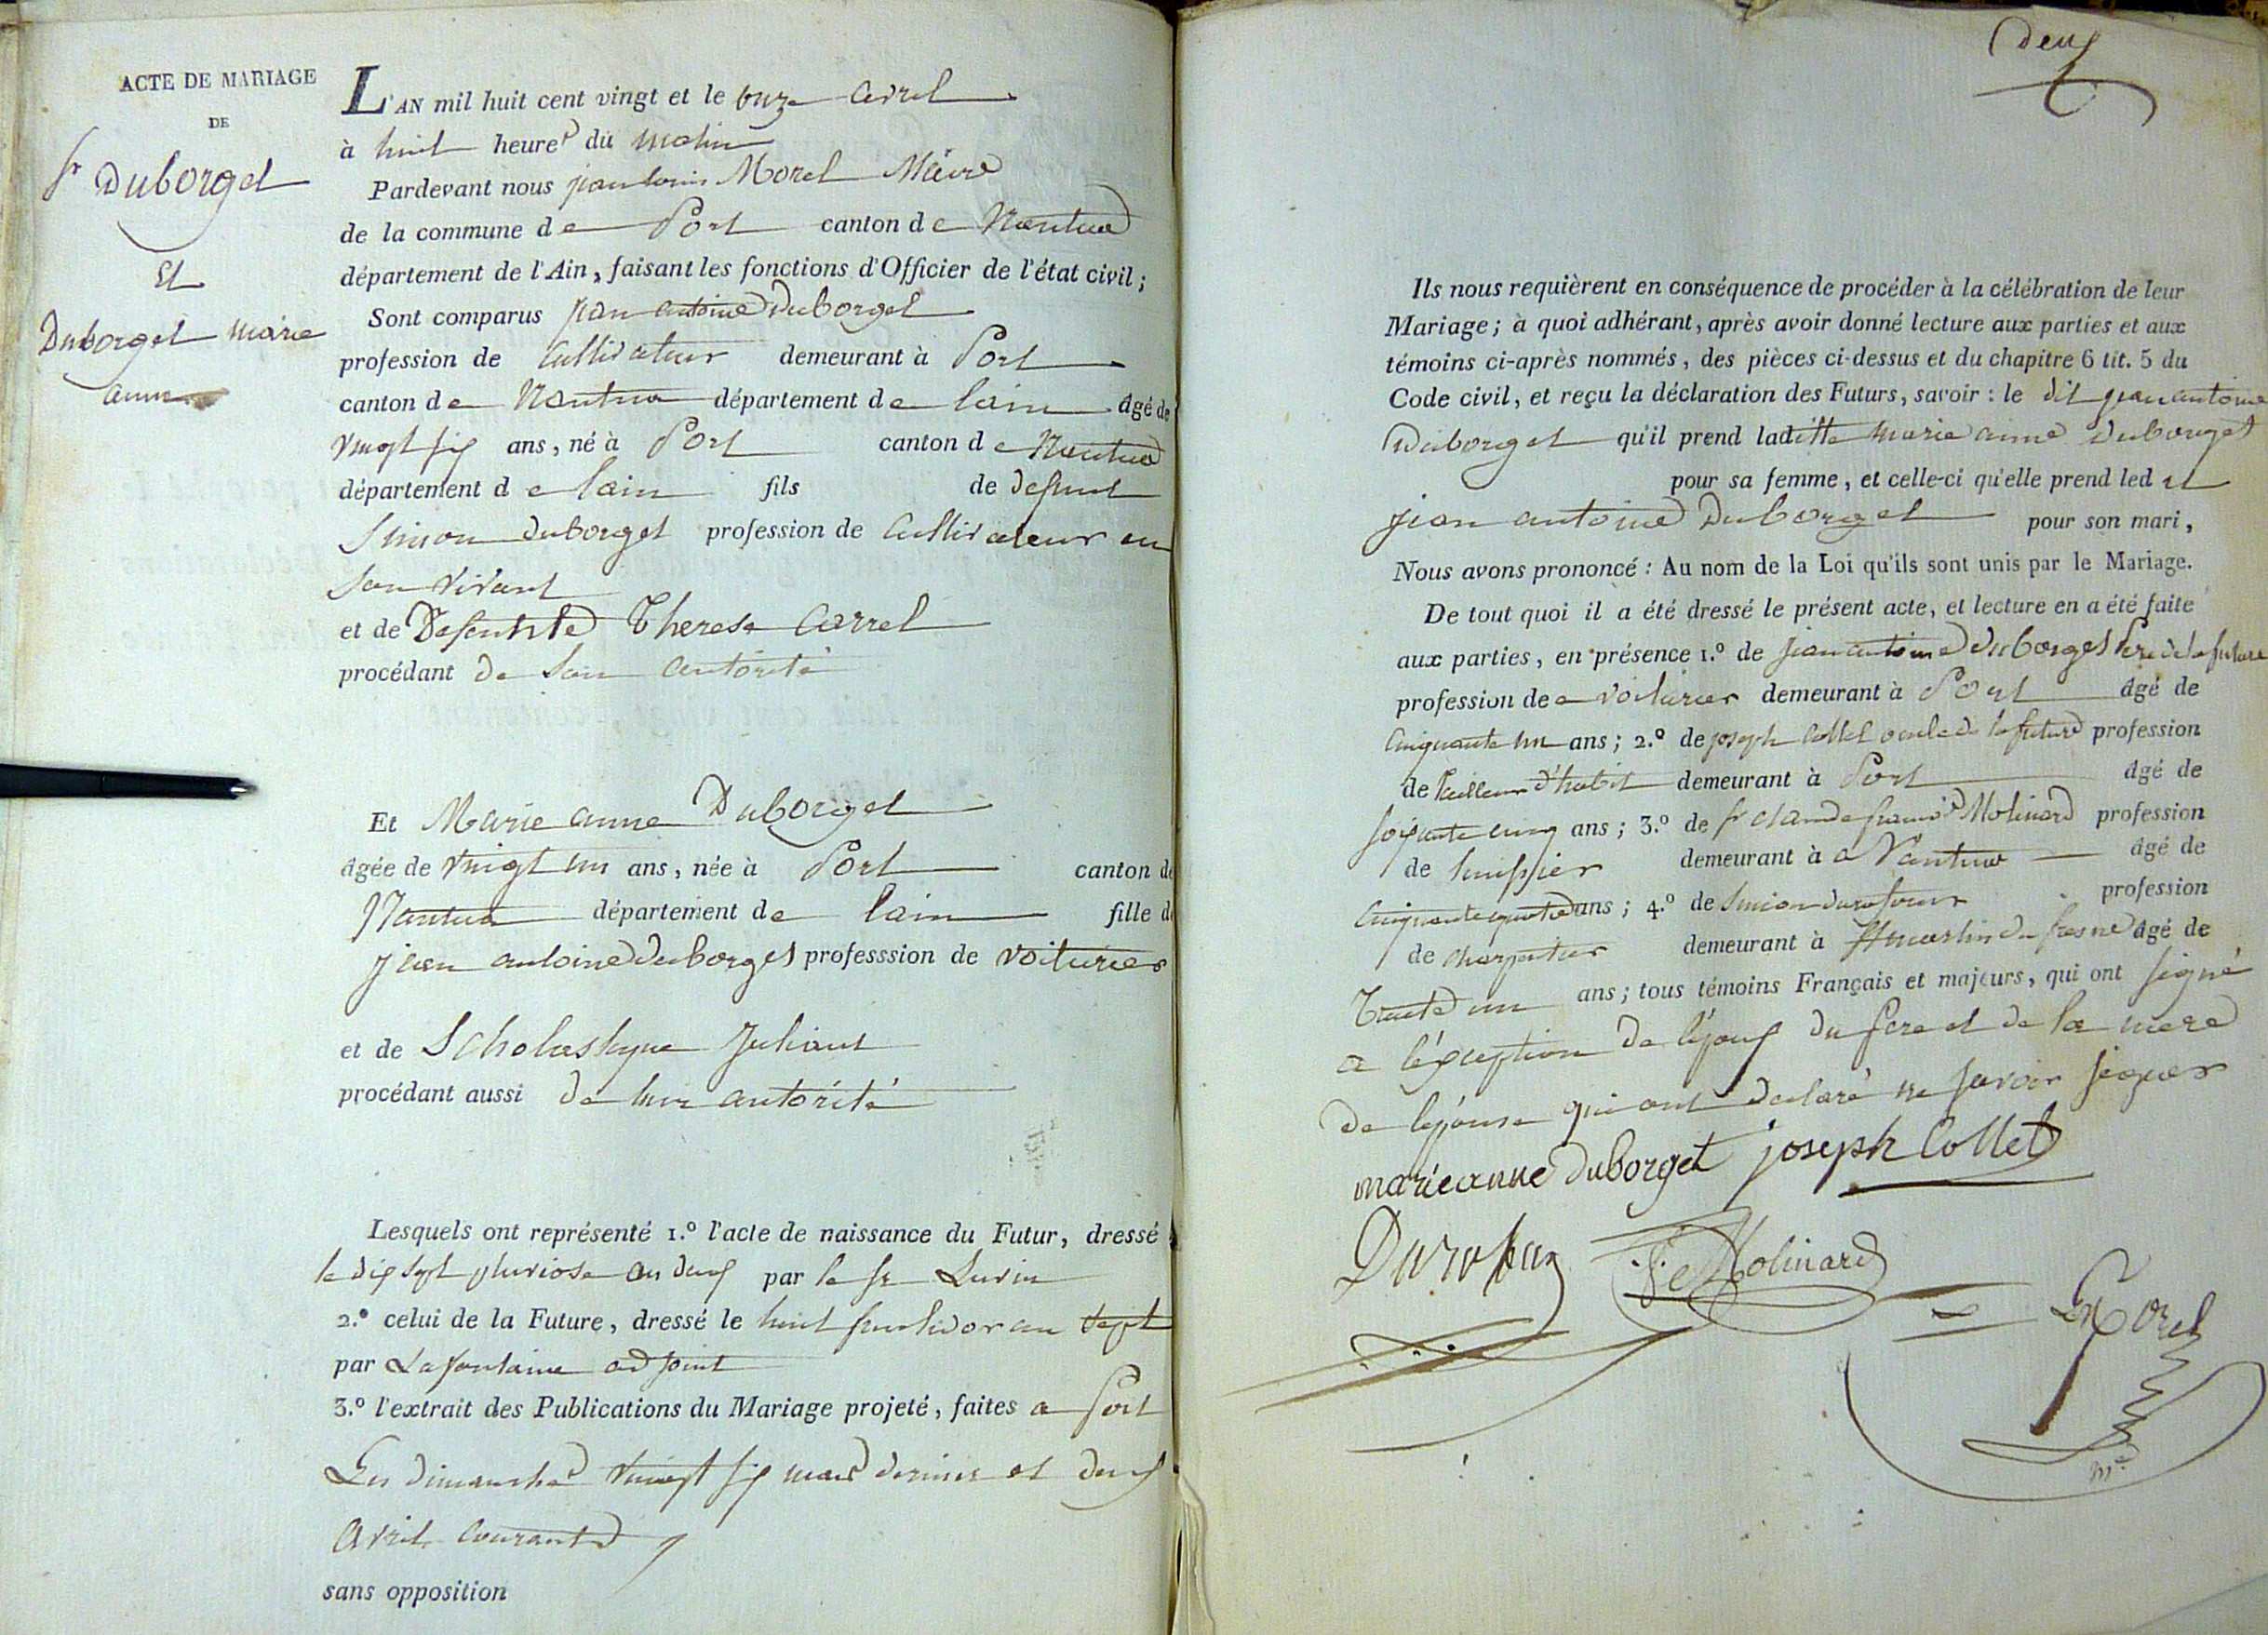 ACTE DE MARIAGE
DE
Sr Duborget
Et
Duborget marie
anne
L'AN mil huit cent vingt et le onze avril
à huit heures du matin
Pardevant nous jean louis Morel Maire
de la commune de Port canton de Nantua
département de l'Ain, faisant les fonctions d'Officier de l'état civil;
Sont comparus jean antoine Duborget
profession de Cultivateur demeurant à Port
canton de Nantua département de lain âgé de
vingt six ans, né à Port canton de Nantua
département de lain fils de defunt
Simon Duborget profession de Cultivateur en
son vivant
et de Defunte Therese Carrel
procédant de son autorité
Et Marie anne Duborget
âgée de vingt un ans, née à Port canton de
Nantua département de lain fille de
jean antoine duborget professsion de voiturier
et de Scholastique Juliant
procédant aussi de leur autorité
Lesquels ont représenté 1.º l'acte de naissance du Futur, dressé
le dix sept pluviose an deux par le sr Luvin
2.º celui de la Future, dressé le huit fructidor an sept
par Lafontaine adjoint
3.º l'extrait des Publications du Mariage projeté, faites a Port
Les dimanches vingt six mars dernier et deux
avril courant
sans opposition
deux
Ils nous requièrent en conséquence de procéder à la célébration de leur
Mariage; à quoi adhérant, après avoir donné lecture aux parties et aux
témoins ci-après nommés, des pièces ci-dessus et du chapitre 6 tit. 5 du
Code civil, et reçu la déclaration des Futurs, savoir: le dit jean antoine
Duborget qu'il prend laditte marie anne duborget
pour sa femme, et celle-ci qu'elle prend led it
jean antoine Duborget pour son mari,
Nous avons prononcé: Au nom de la Loi qu'ils sont unis par le Mariage.
De tout quoi il a été dressé le présent acte, et lecture en a été faite
aux parties, en présence 1.º de jean antoine duborget Pere de la future
profession de voiturier demeurant à Port âgé de
Cinquante un ans; 2.º de joseph Collet oncle de la future profession
de Tailleur d'habit demeurant à Port âgé de
soixante cinq ans; 3.º de sr claude francois Molinard profession
de huissier demeurant à a Nantua âgé de
Cinquante quatre ans; 4.º de Simion durafour profession
de charpentier demeurant à St martin du fresne âgé de
Trente un ans; tous témoins Français et majeurs, qui ont signé
a lexception de lepoux du pere et de la mere
de lepouse qui ont declaré ne savoir signer
marieanne duborget joseph Collet
Durafour
Molinard
Morel
me